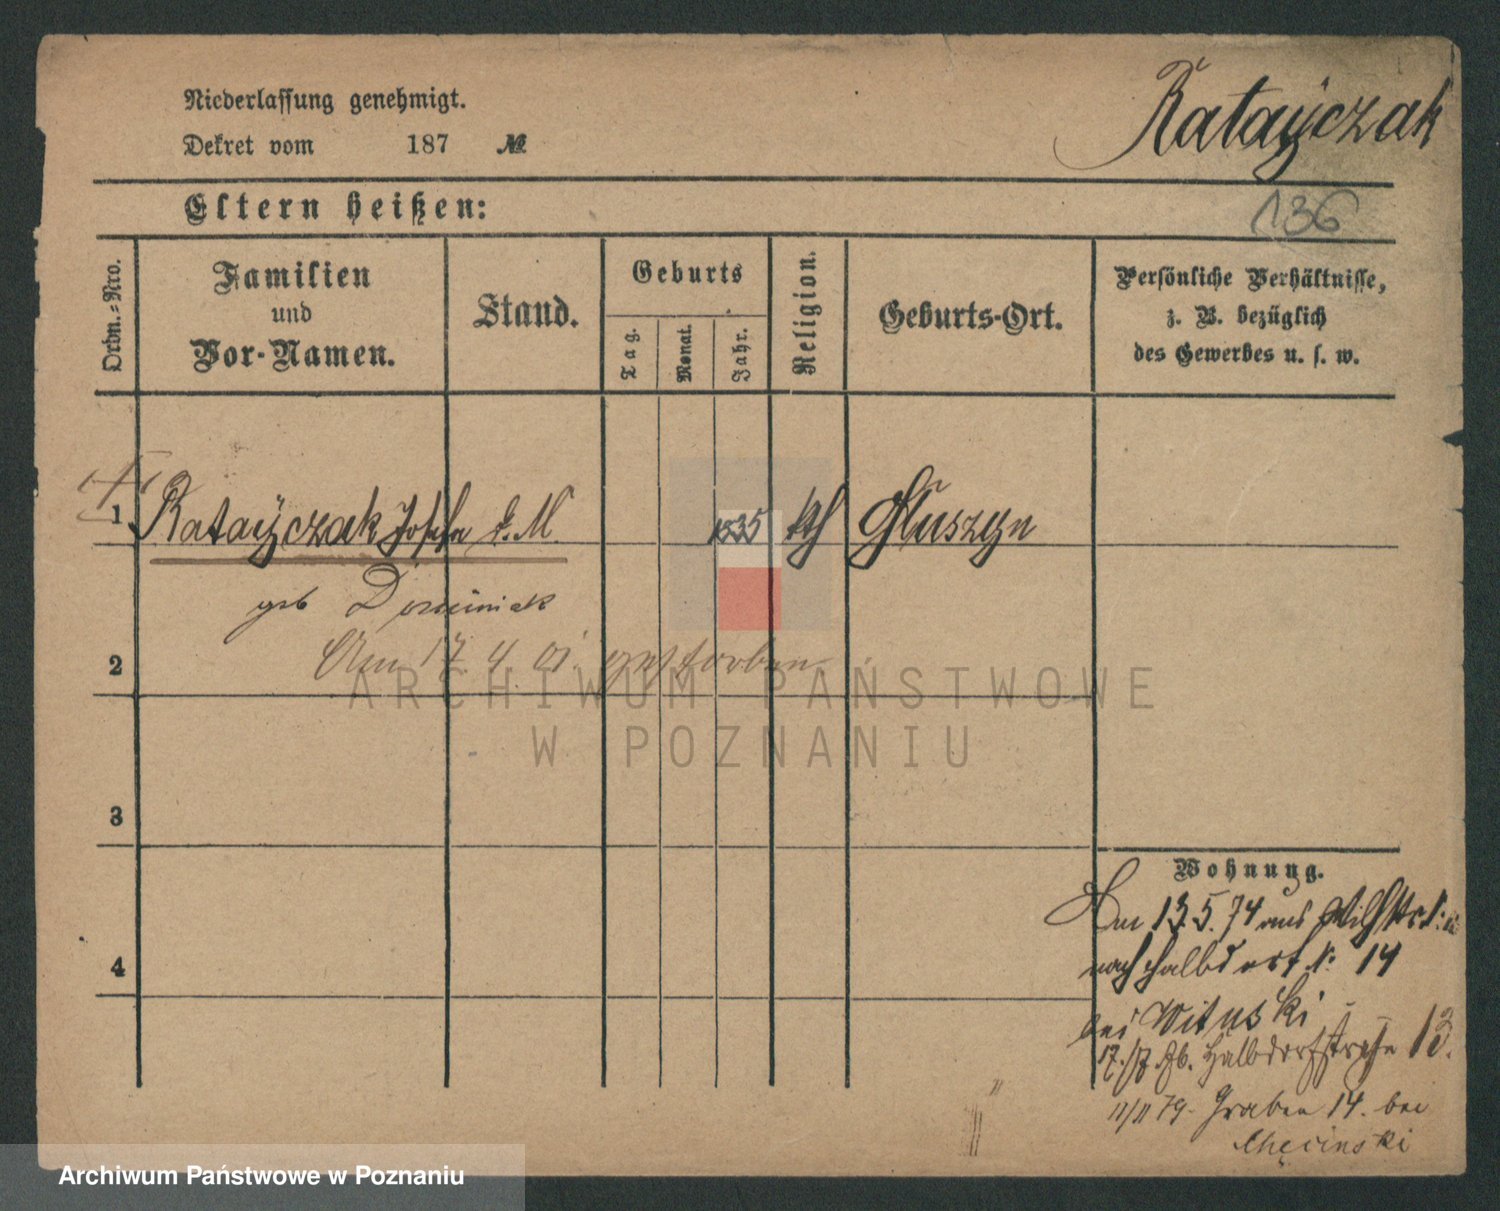 Niederlassung genehmigt.
Ratayczak
Dekret vom 187 №
136
Eltern heißen:
Ordn.-Nro.
Familien
und
Vor-Namen.
Stand.
Geburts
Tag.
Monat.
Jahr.
Religion.
Geburts-Ort.
Persönliche Verhältnisse,
z. B. bezüglich
des Gewerbes u. s. w.
1 Ratayczak Josepha 1835 kth Gluszyn
geb Dominiak
2 Am 17 4 01. gestorben
3
Wohnung.
Am 13.5.74 aus Wilhstr
4
nach Halbdorf № 14
bei Wituski
Halbdorfstraße 13.
11/11 79. Graben 14. bei
Checinski
ARCHIWUM PAŃSTWOWE
W POZNANIU
Archiwum Państwowe w Poznaniu